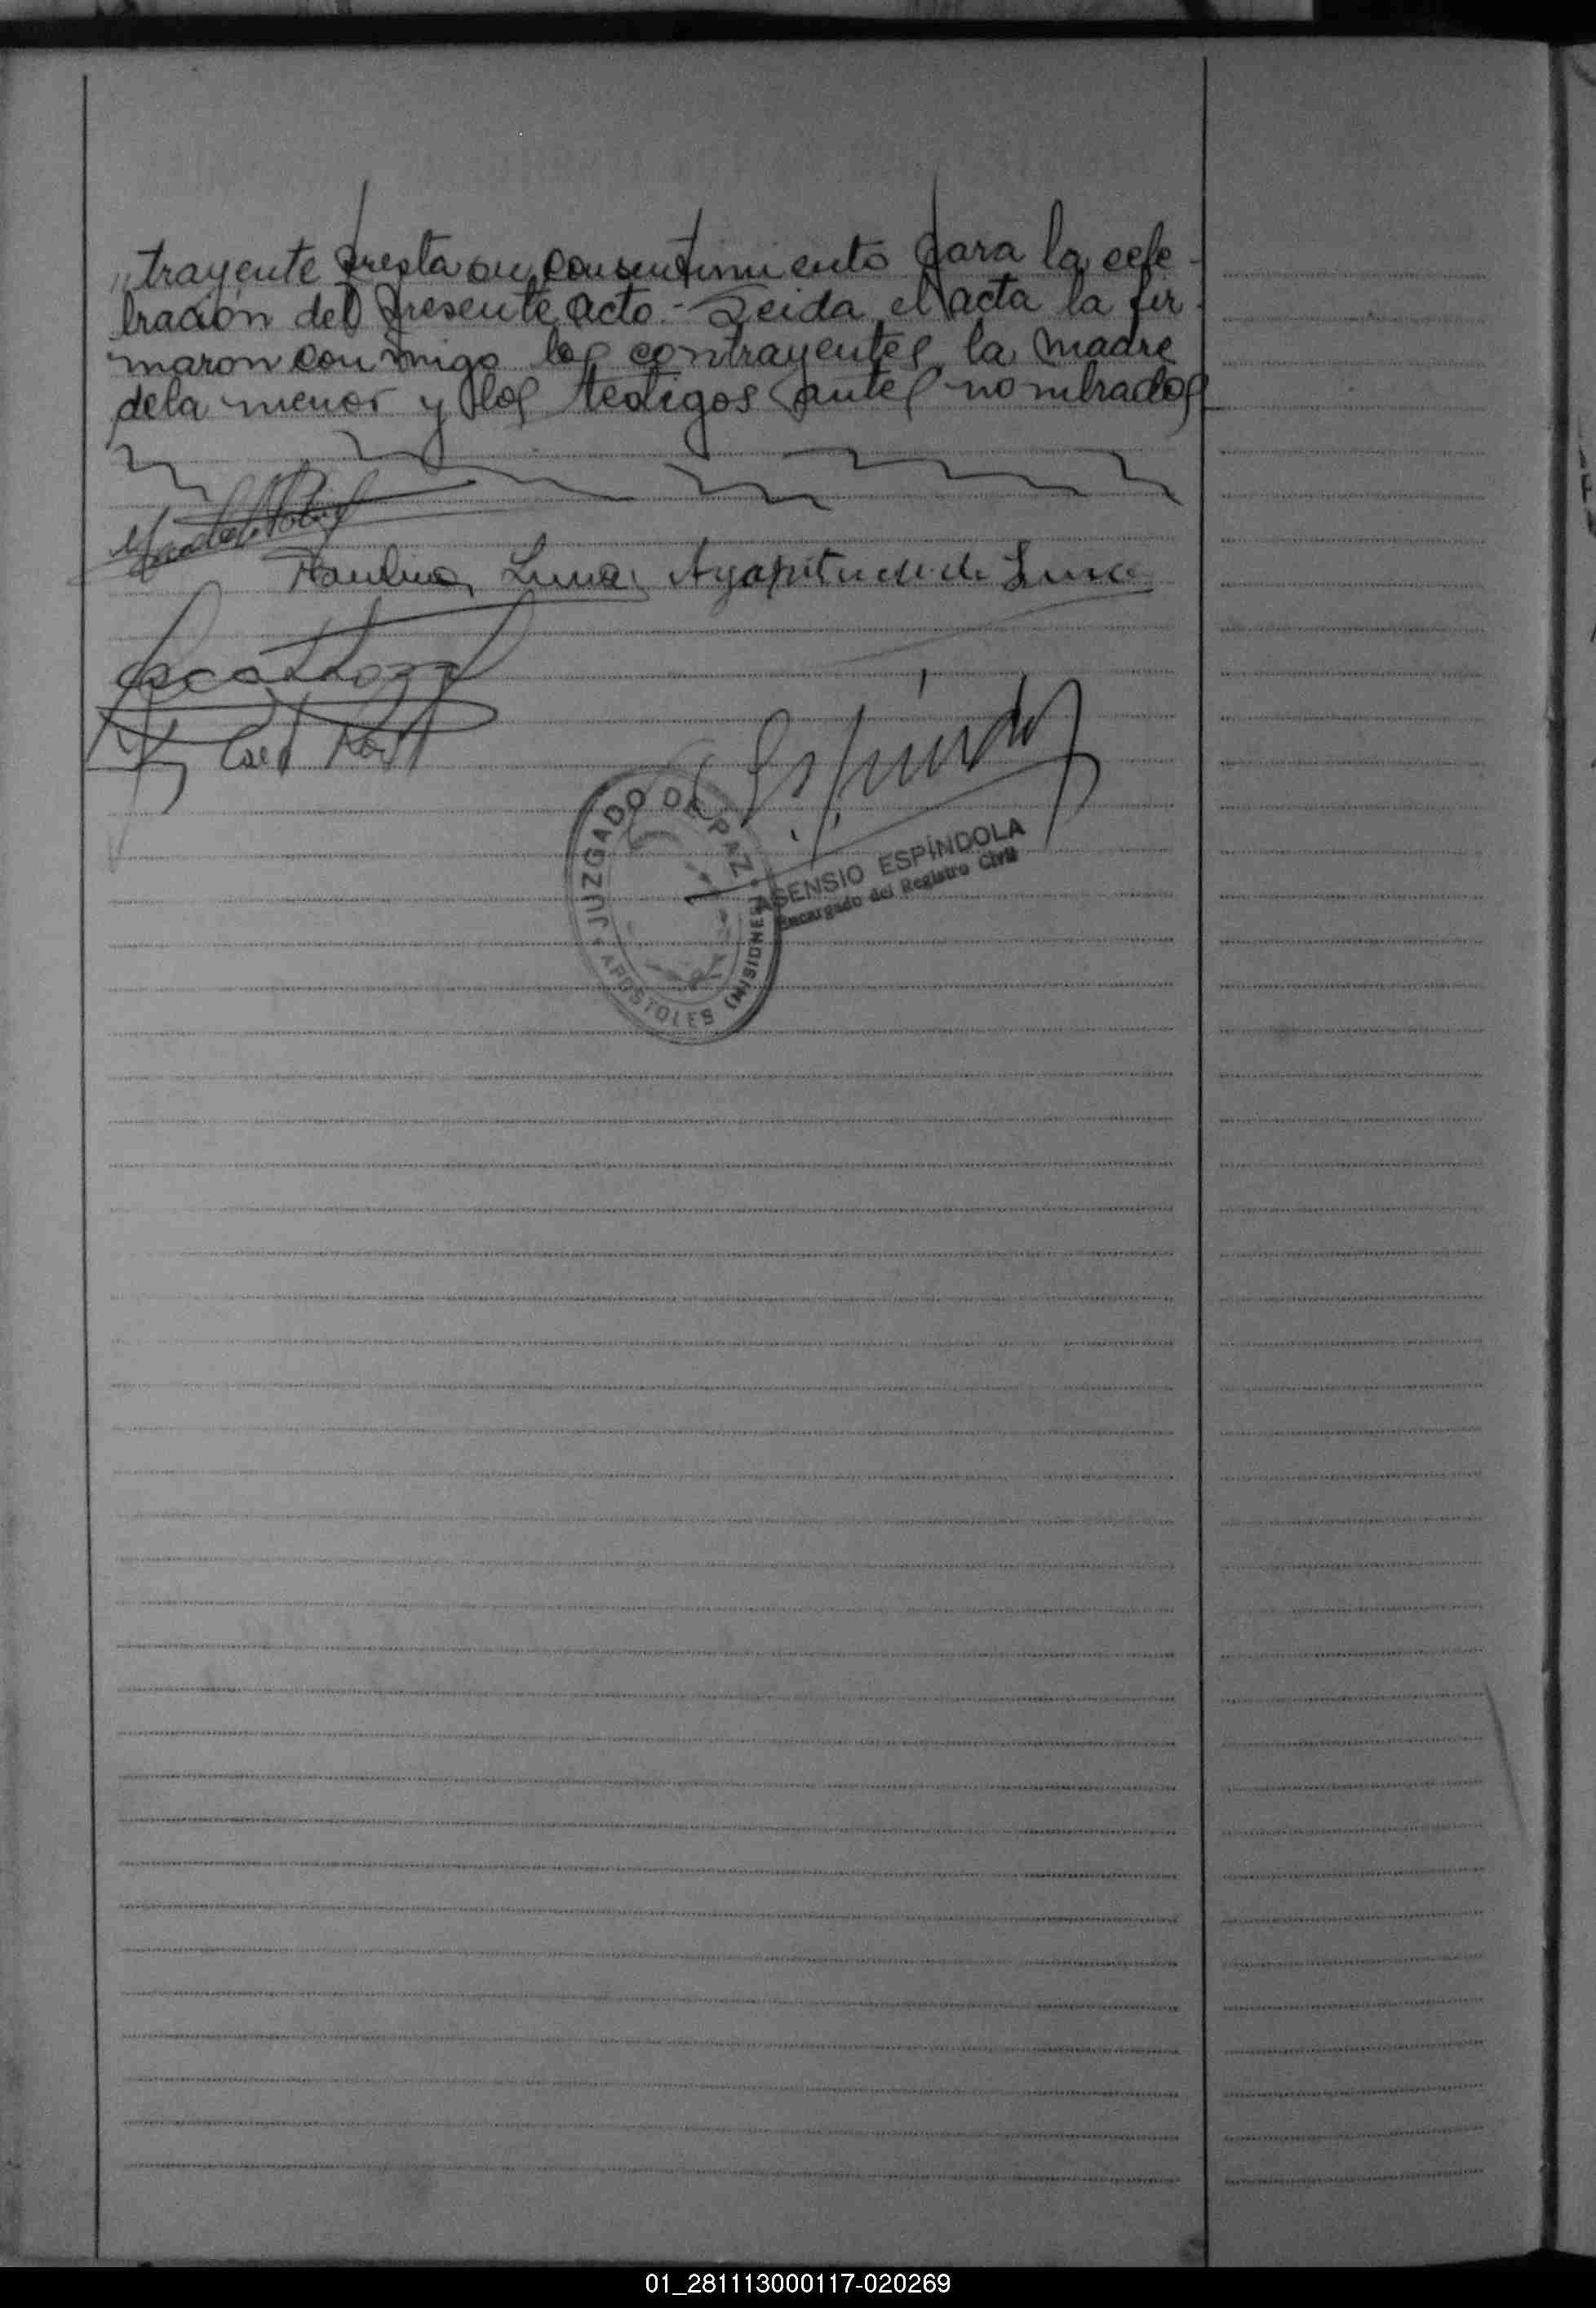 „trayente presta su consentimiento para la cele-
bración del presente acto.- Leida el acta la fir-
maron con migo los contrayentes, la madre
dela menor y los testigos antes nombrados
Paulina Luna Agapita de Luna
JUZGADO DE PAZ
APOSTOLES (MISIONES)
ASENSIO ESPÍNDOLA
Encargado del Registro Civil
01_281113000117-020269